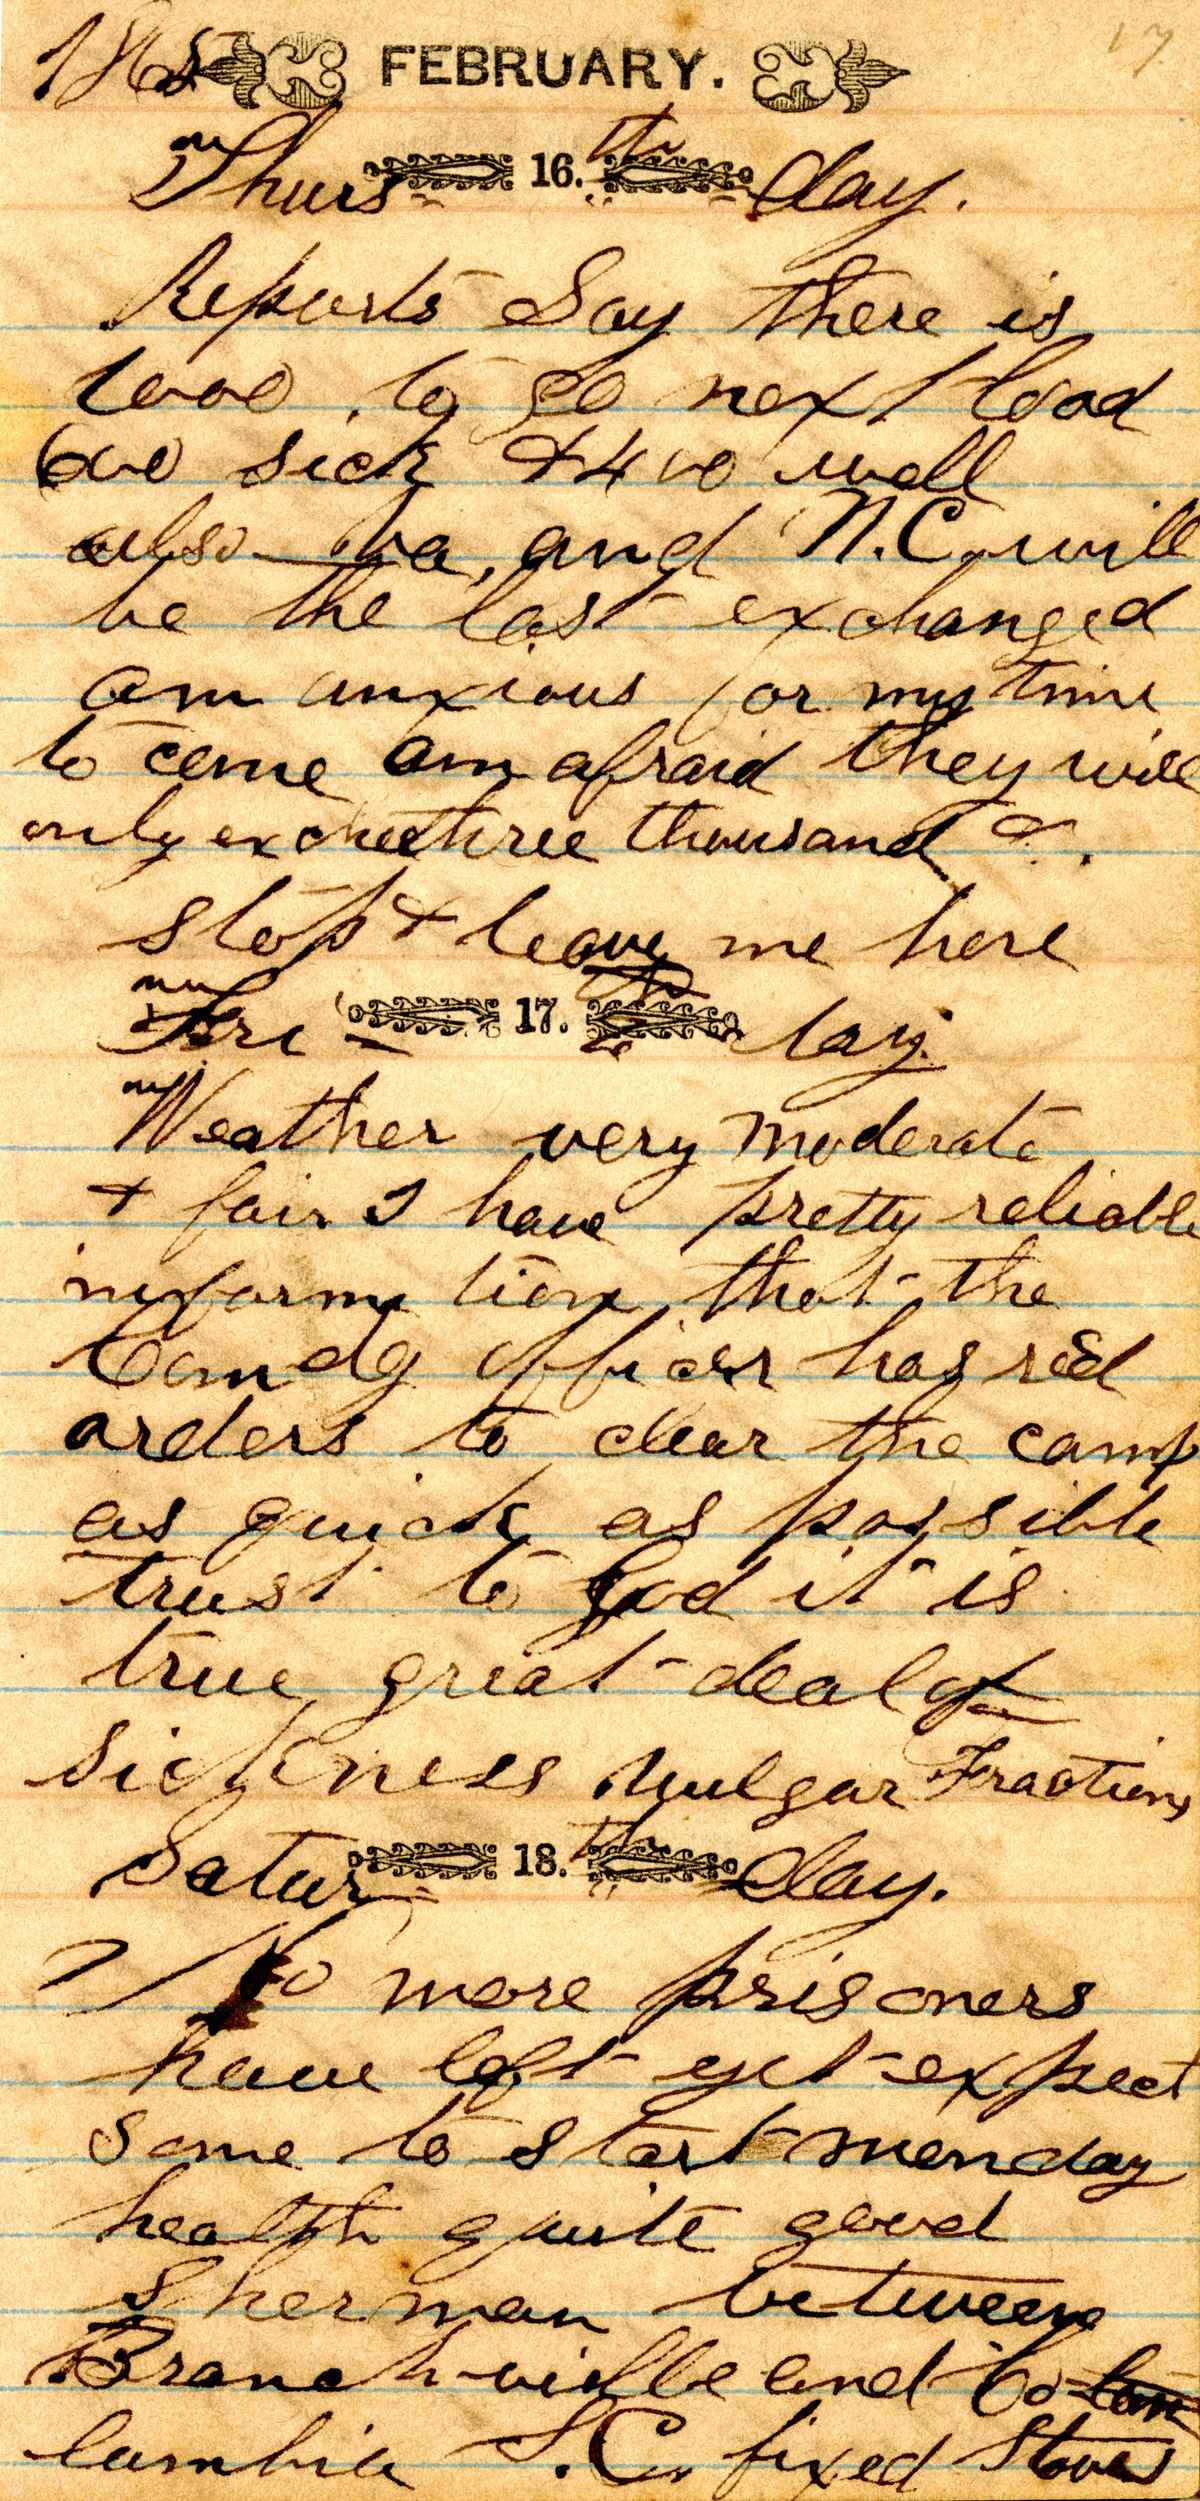 1865 FEBRUARY. 17
Thurs 16.th day.
Reports Say there is
1000. to go next load
600 sick & 400 well
also Va, and N.C. will
be the last exchanged
am anxious for my time
to come am afraid they will
only exchee three thousand &.
stop & leave me here
Fri 17.th day.
Weather very moderate
& fair I have pretty reliable
informa tion, that the
Comdg officer has red
orders to clear the camp
as quick as possible
trust to God it is
true, great deal of
sickness Vulgar Fractions
Satur 18.th day.
No more prisoners
have left yet expect
some to start monday
health quite good
Sherman between
Branchville and Co
lumbia S.C. fixed Stove